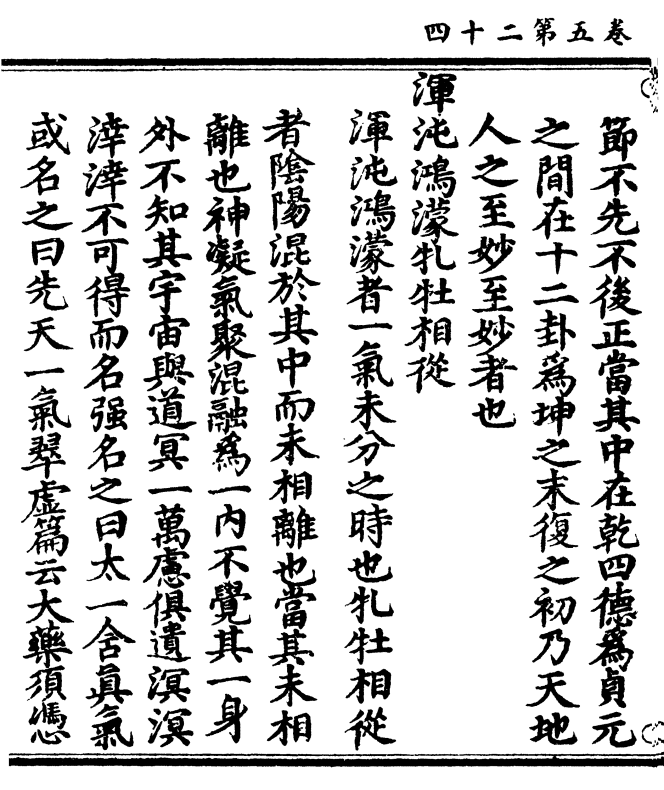 四十二第五卷
節不先不後正當其中在乾四德爲貞元
之間在十二卦爲坤之末復之初乃天地
人之至妙至妙者也
渾沌鴻濛牝牡相從
渾沌鴻濛者一氣未分之時也牝牡相從
者陰陽混於其中而未相離也當其未相
離也神凝氣聚混融爲一內不覺其一身
外不知其宇宙與道冥一萬慮俱遺溟溟
涬涬不可得而名强名之曰太一含眞氣
或名之曰先天一氣翠虛篇云大藥須憑